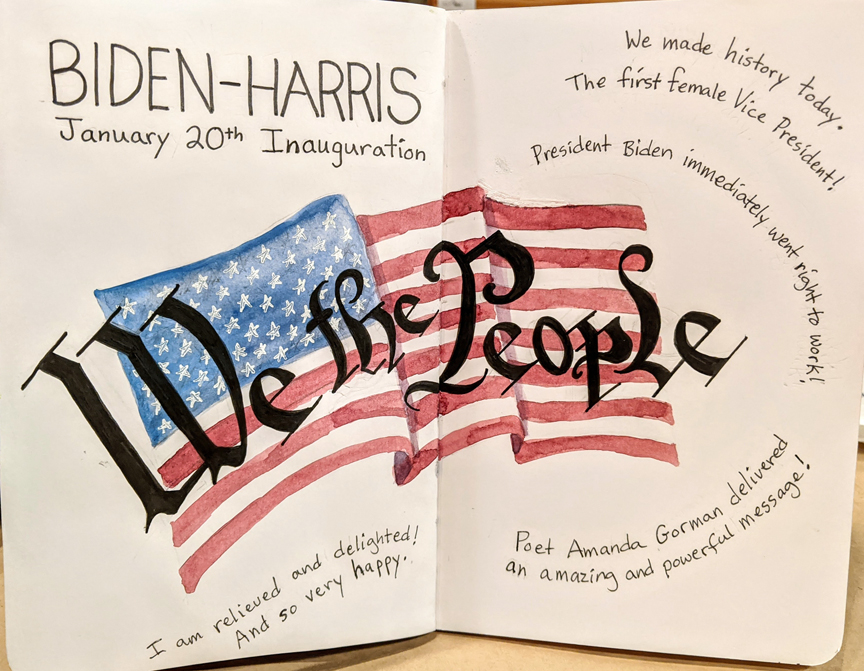 BIDEN-HARRIS
January 20th Inauguration
We the People
I am relieved and delighted!
And so very happy.
We made history today.
The first female Vice President!
President Biden immediately went right to work!
Poet Amanda Gorman delivered
an amazing and powerful message!